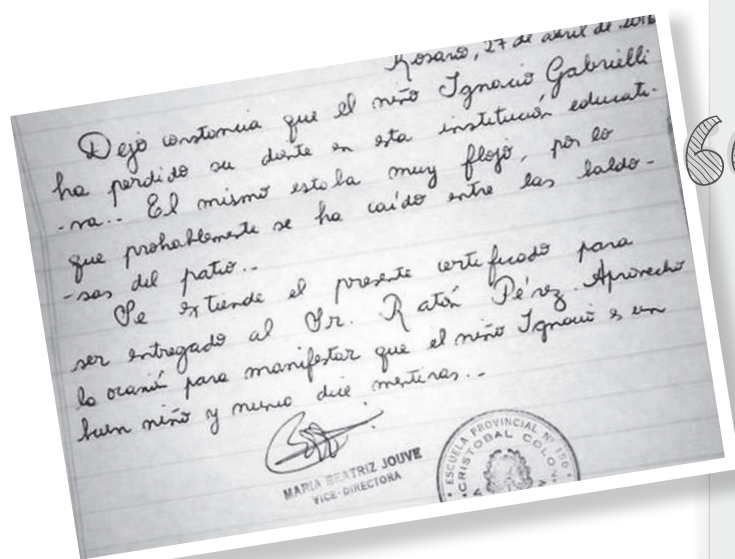 Rosario, 27 de abril de
Dejo constancia que el niño Ignacio Gabrielli
ha perdido su diente en esta institución educati-
-va.. El mismo estaba muy flojo, por lo
que probablemente se ha caído entre las baldo-
-sas del patio.-
Se extiende el presente certificado para
ser entregado al Sr. Ratón Pérez. Aprovecho
la ocasión para manifestar que el niño Ignacio es un
buen niño y nunca dice mentiras..-
MARIA BEATRIZ JOUVE
VICE-DIRECTORA
ESCUELA PROVINCIAL Nº
CRISTOBAL COLON